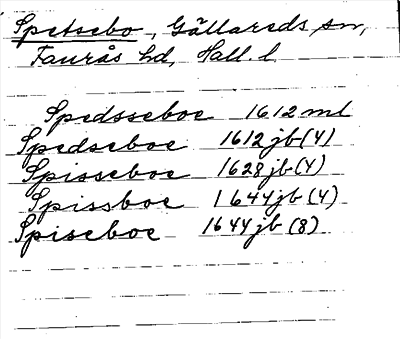 Spetsebo, Gällareds sn,
Faurås hd, Hall. l.
Spedsseboe 1612 ml
Spedseboe 1612 jb (4)
Spisseboe 1628 jb (4)
Spissboe 1644 jb (4)
Spiseboe 1644 jb (8)